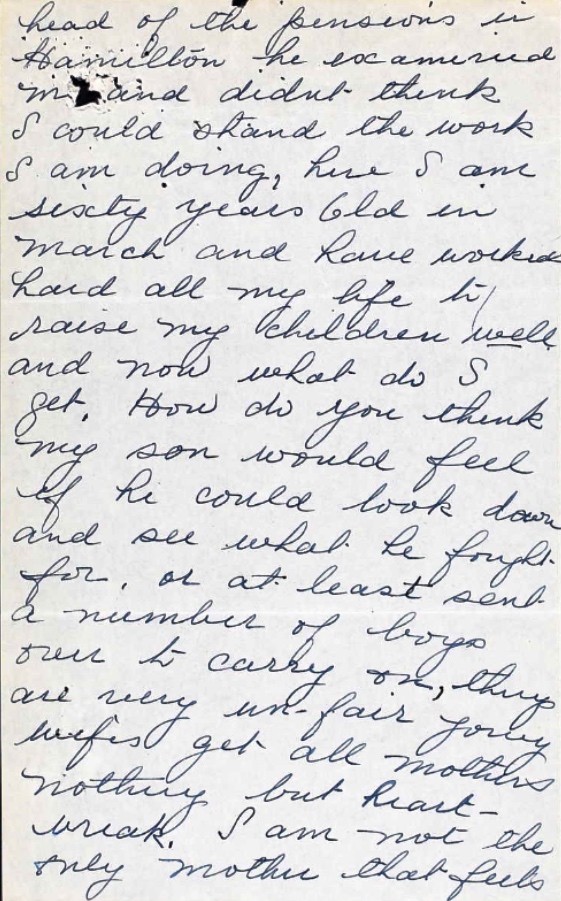 head of the pensions in
Hamilton he examined
me and didnt think
I could stand the work
I am doing, here I am
sixty years old in
march and have worked
hard all my life to
raise my children well
and now what do I
get. How do you think
my son would feel
if he could look down
and see what he fought
for, or at least sent
a number of boys
over to carry on, they
are very un-fair young
wifes get all mothers
nothing but heart-
break. I am not the
only mother that feels